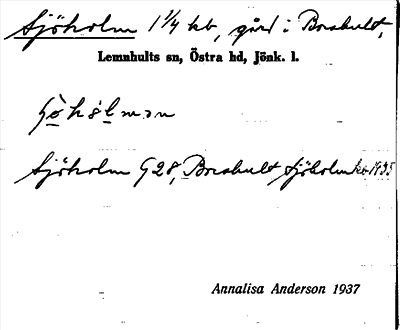 Sjöholm 1 1/4 hb, gård i Boahult,
Lemnhults sn, Östra hd, Jönk. l.
Sjöholm G 28, Boahult Sjöholm 1935
Annalisa Anderson 1937